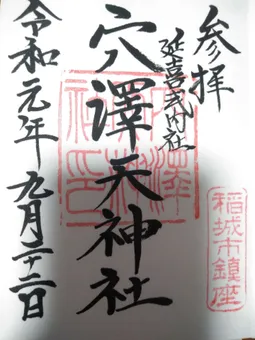 参拝
延喜式内社
穴澤天神社
令和元年九月二十二日
稲城市鎮座